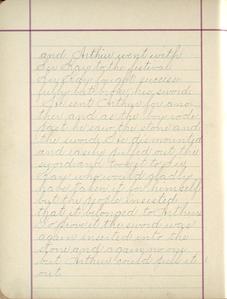 and Arthur went with
Sir Kay to the festival
Sir Kay fought success
fully but broke his sword
He sent Arthur for ano
ther and as the boy rode
past he saw the stone and
the sword. He dismounted
and easily pulled out the
sword and took it to Sir
Kay who would gladly
have taken it for himself
but the people insisted
that it belonged to Arthur
So prove it the sword was
again inserted into the
stone and again no one
but Arthur could pull it
out